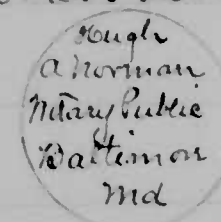 Hugh
A Norman
Notary Public
Baltimore
Md